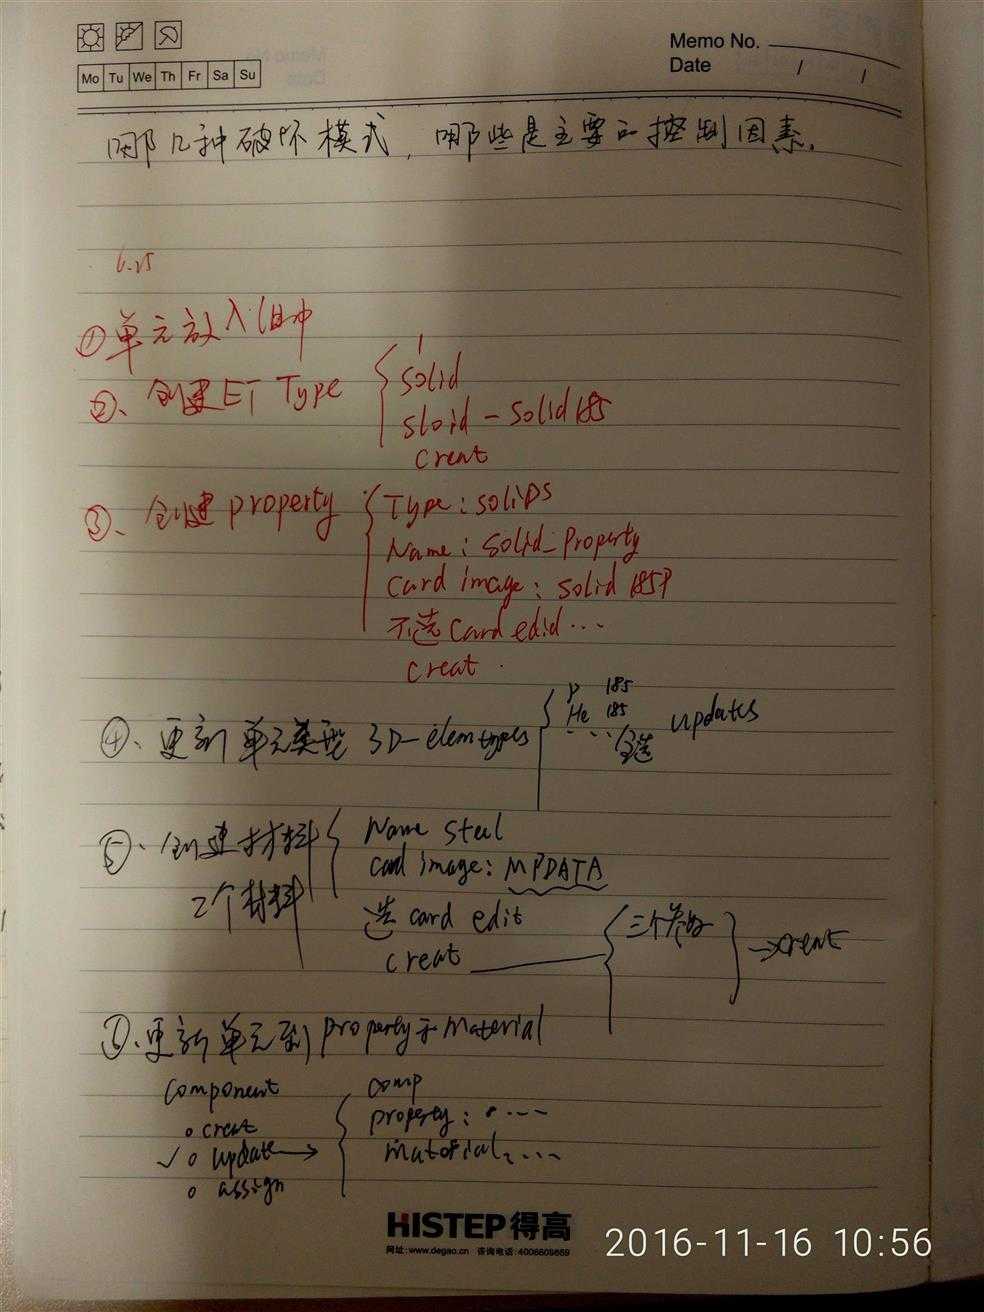 Memo No.
Mo Tu We Th Fr Sa Su
Date / /
哪几种破坏模式，哪些是主要的控制因素.
6.25
①单元放入组中
②、创建ET Type
solid
sloid - solid 185
creat
③、创建property
Type : soliDs
Name : solid_Property
Card image : solid 185P
不选 Card edid ...
creat
④、更新单元类型 3D-elemtypes
P 185
He 185
... 全选 updates
⑤、创建材料
2个材料
Name steel
card image : MPDATA
选 card edit
creat
三个参数 → creat
更新单元到 property于Material
component
creat
✓ update →
assign
comp
property : ...
material : ...
HISTEP 得高
网址:www.degao.cn 咨询电话:4006609669
2016-11-16 10:56